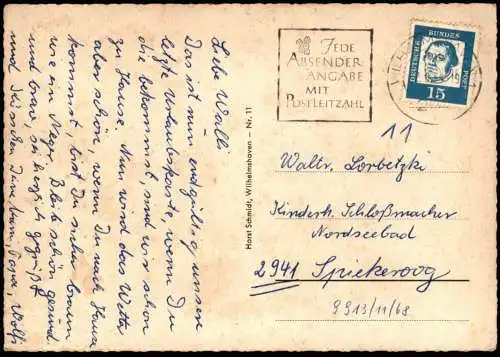 Liebe Walli
Das ist nun endgültig unsere
letzte Urlaubskarte, wenn Du
die bekommst, sind wir schon
zu Hause. Nun wird das Wetter
aber schön, wenn Du nach Hause
kommst, bist Du sicher braun
wie ein Neger. Bleib schön gesund
und brav, sei herzlich gegrüßt
und
Papa,
Horst Schmidt, Wilhelmshaven - Nr. 11
JEDE
ABSENDER
ANGABE
MIT
POSTLEITZAHL
DEUTSCHE BUNDESPOST
15
11
Waltr. Lorbetzki
Kinderh. Schloßmacher
Nordseebad
2941 Spiekeroog
9913/11/68